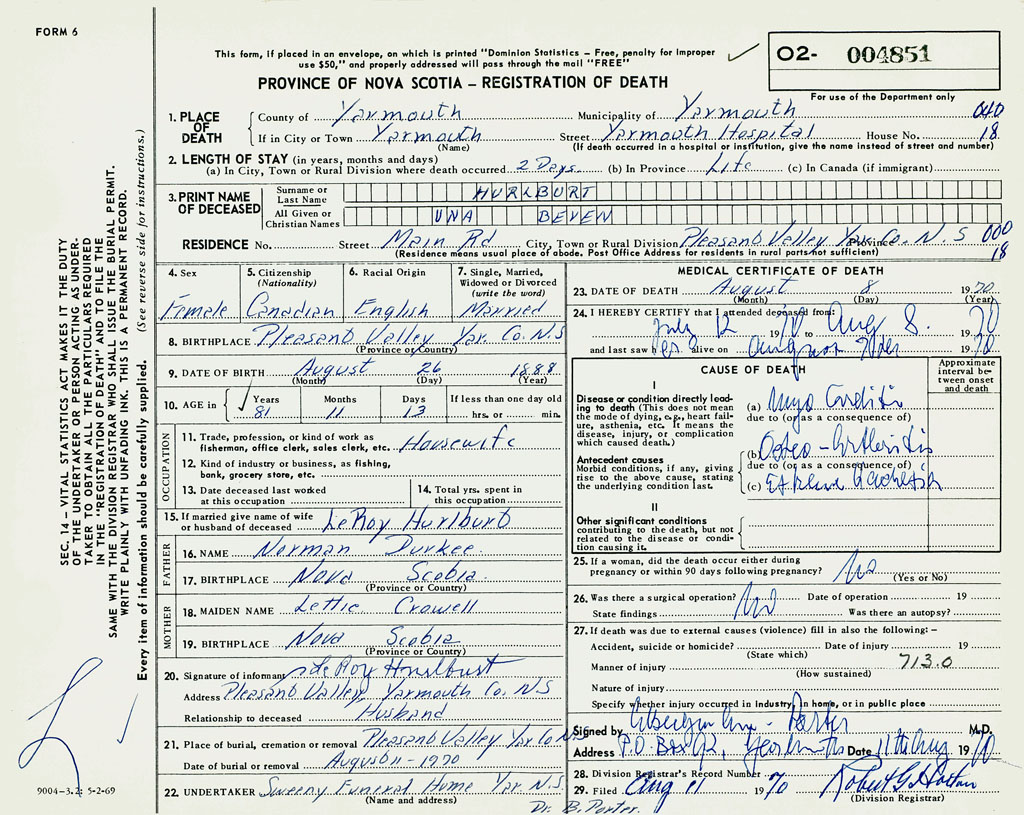 FORM 6
This form, if placed in an envelope, on which is printed "Dominion Statistics – Free, penalty for improper
use $50," and properly addressed will pass through the mail "FREE"
O2- 004851
PROVINCE OF NOVA SCOTIA – REGISTRATION OF DEATH
For use of the Department only
1. PLACE OF DEATH
County of Yarmouth Municipality of Yarmouth 040
If in City or Town Yarmouth Street Yarmouth Hospital House No. 18
(Name) (If death occurred in a hospital or institution, give the name instead of street and number)
2. LENGTH OF STAY (in years, months and days)
(a) In City, Town or Rural Division where death occurred 2 Days (b) In Province Life (c) In Canada (if immigrant)
3. PRINT NAME OF DECEASED
Surname or Last Name HURLBURT
All Given or Christian Names UNA BEVEN
RESIDENCE No. Street Main Rd City, Town or Rural Division Pleasant Valley Yar. Co. N.S Province 000
(Residence means usual place of abode. Post Office Address for residents in rural parts not sufficient) 18
4. Sex 5. Citizenship (Nationality) 6. Racial Origin 7. Single, Married, Widowed or Divorced (write the word)
Female Canadian English Married
8. BIRTHPLACE Pleasant Valley Yar. Co. N.S
(Province or Country)
9. DATE OF BIRTH August 26 1888
(Month) (Day) (Year)
10. AGE in Years Months Days If less than one day old
81 11 13 hrs. or min.
OCCUPATION
11. Trade, profession, or kind of work as
fisherman, office clerk, sales clerk, etc. Housewife
12. Kind of industry or business, as fishing,
bank, grocery store, etc.
13. Date deceased last worked
at this occupation
14. Total yrs. spent in
this occupation
15. If married give name of wife
or husband of deceased LeRoy Hurlburt
FATHER
16. NAME Norman Durkee
17. BIRTHPLACE Nova Scotia
(Province or Country)
MOTHER
18. MAIDEN NAME Lettie Crowell
19. BIRTHPLACE Nova Scotia
(Province or Country)
20. Signature of informant LeRoy Hurlburt
Address Pleasant Valley, Yarmouth Co. N.S
Relationship to deceased Husband
21. Place of burial, cremation or removal Pleasant Valley Yar Co N.S
Date of burial or removal August 11 - 1970
22. UNDERTAKER Sweeny Funeral Home Yar. N.S.
(Name and address)
Dr. B. Porter.
MEDICAL CERTIFICATE OF DEATH
23. DATE OF DEATH August 8 1970
(Month) (Day) (Year)
24. I HEREBY CERTIFY that I attended deceased from:
July 12 1970 to Aug 8. 1970
and last saw her alive on 1970
CAUSE OF DEATH
Approximate interval between onset and death
I
Disease or condition directly leading
to death (This does not mean
the mode of dying, e.g., heart failure,
asthenia, etc. It means the
disease, injury, or complication
which caused death.
(a) Myo Carditis
due to (or as a consequence of)
Antecedent causes
Morbid conditions, if any, giving
rise to the above cause, stating
the underlying condition last.
(b) Osteo-Arthritis
due to (or as a consequence of)
(c) Extreme
II
Other significant conditions
contributing to the death, but not
related to the disease or condition
causing it.
25. If a woman, did the death occur either during
pregnancy or within 90 days following pregnancy? No
(Yes or No)
26. Was there a surgical operation? No Date of operation 19
State findings Was there an autopsy?
27. If death was due to external causes (violence) fill in also the following: –
Accident, suicide or homicide? Date of injury 19
(State which)
Manner of injury 713.0
(How sustained)
Nature of injury
Specify whether injury occurred in industry, in home, or in public place
Signed by Porter M.D.
Address P.O. Box 92, Yarmouth Date 11th Aug 1970
28. Division Registrar's Record Number
29. Filed Aug 11 1970 Robert G Horton
(Division Registrar)
SEC. 14 – VITAL STATISTICS ACT MAKES IT THE DUTY
OF THE UNDERTAKER OR PERSON ACTING AS UNDERTAKER
TO OBTAIN ALL THE PARTICULARS REQUIRED
IN THE "REGISTRATION OF DEATH" AND TO FILE THE
SAME WITH THE DIVISION REGISTRAR WHO SHALL ISSUE THE BURIAL PERMIT.
WRITE PLAINLY WITH UNFADING INK. THIS IS A PERMANENT RECORD.
Every item of information should be carefully supplied. (See reverse side for instructions.)
9004-3.2: 5-2-69